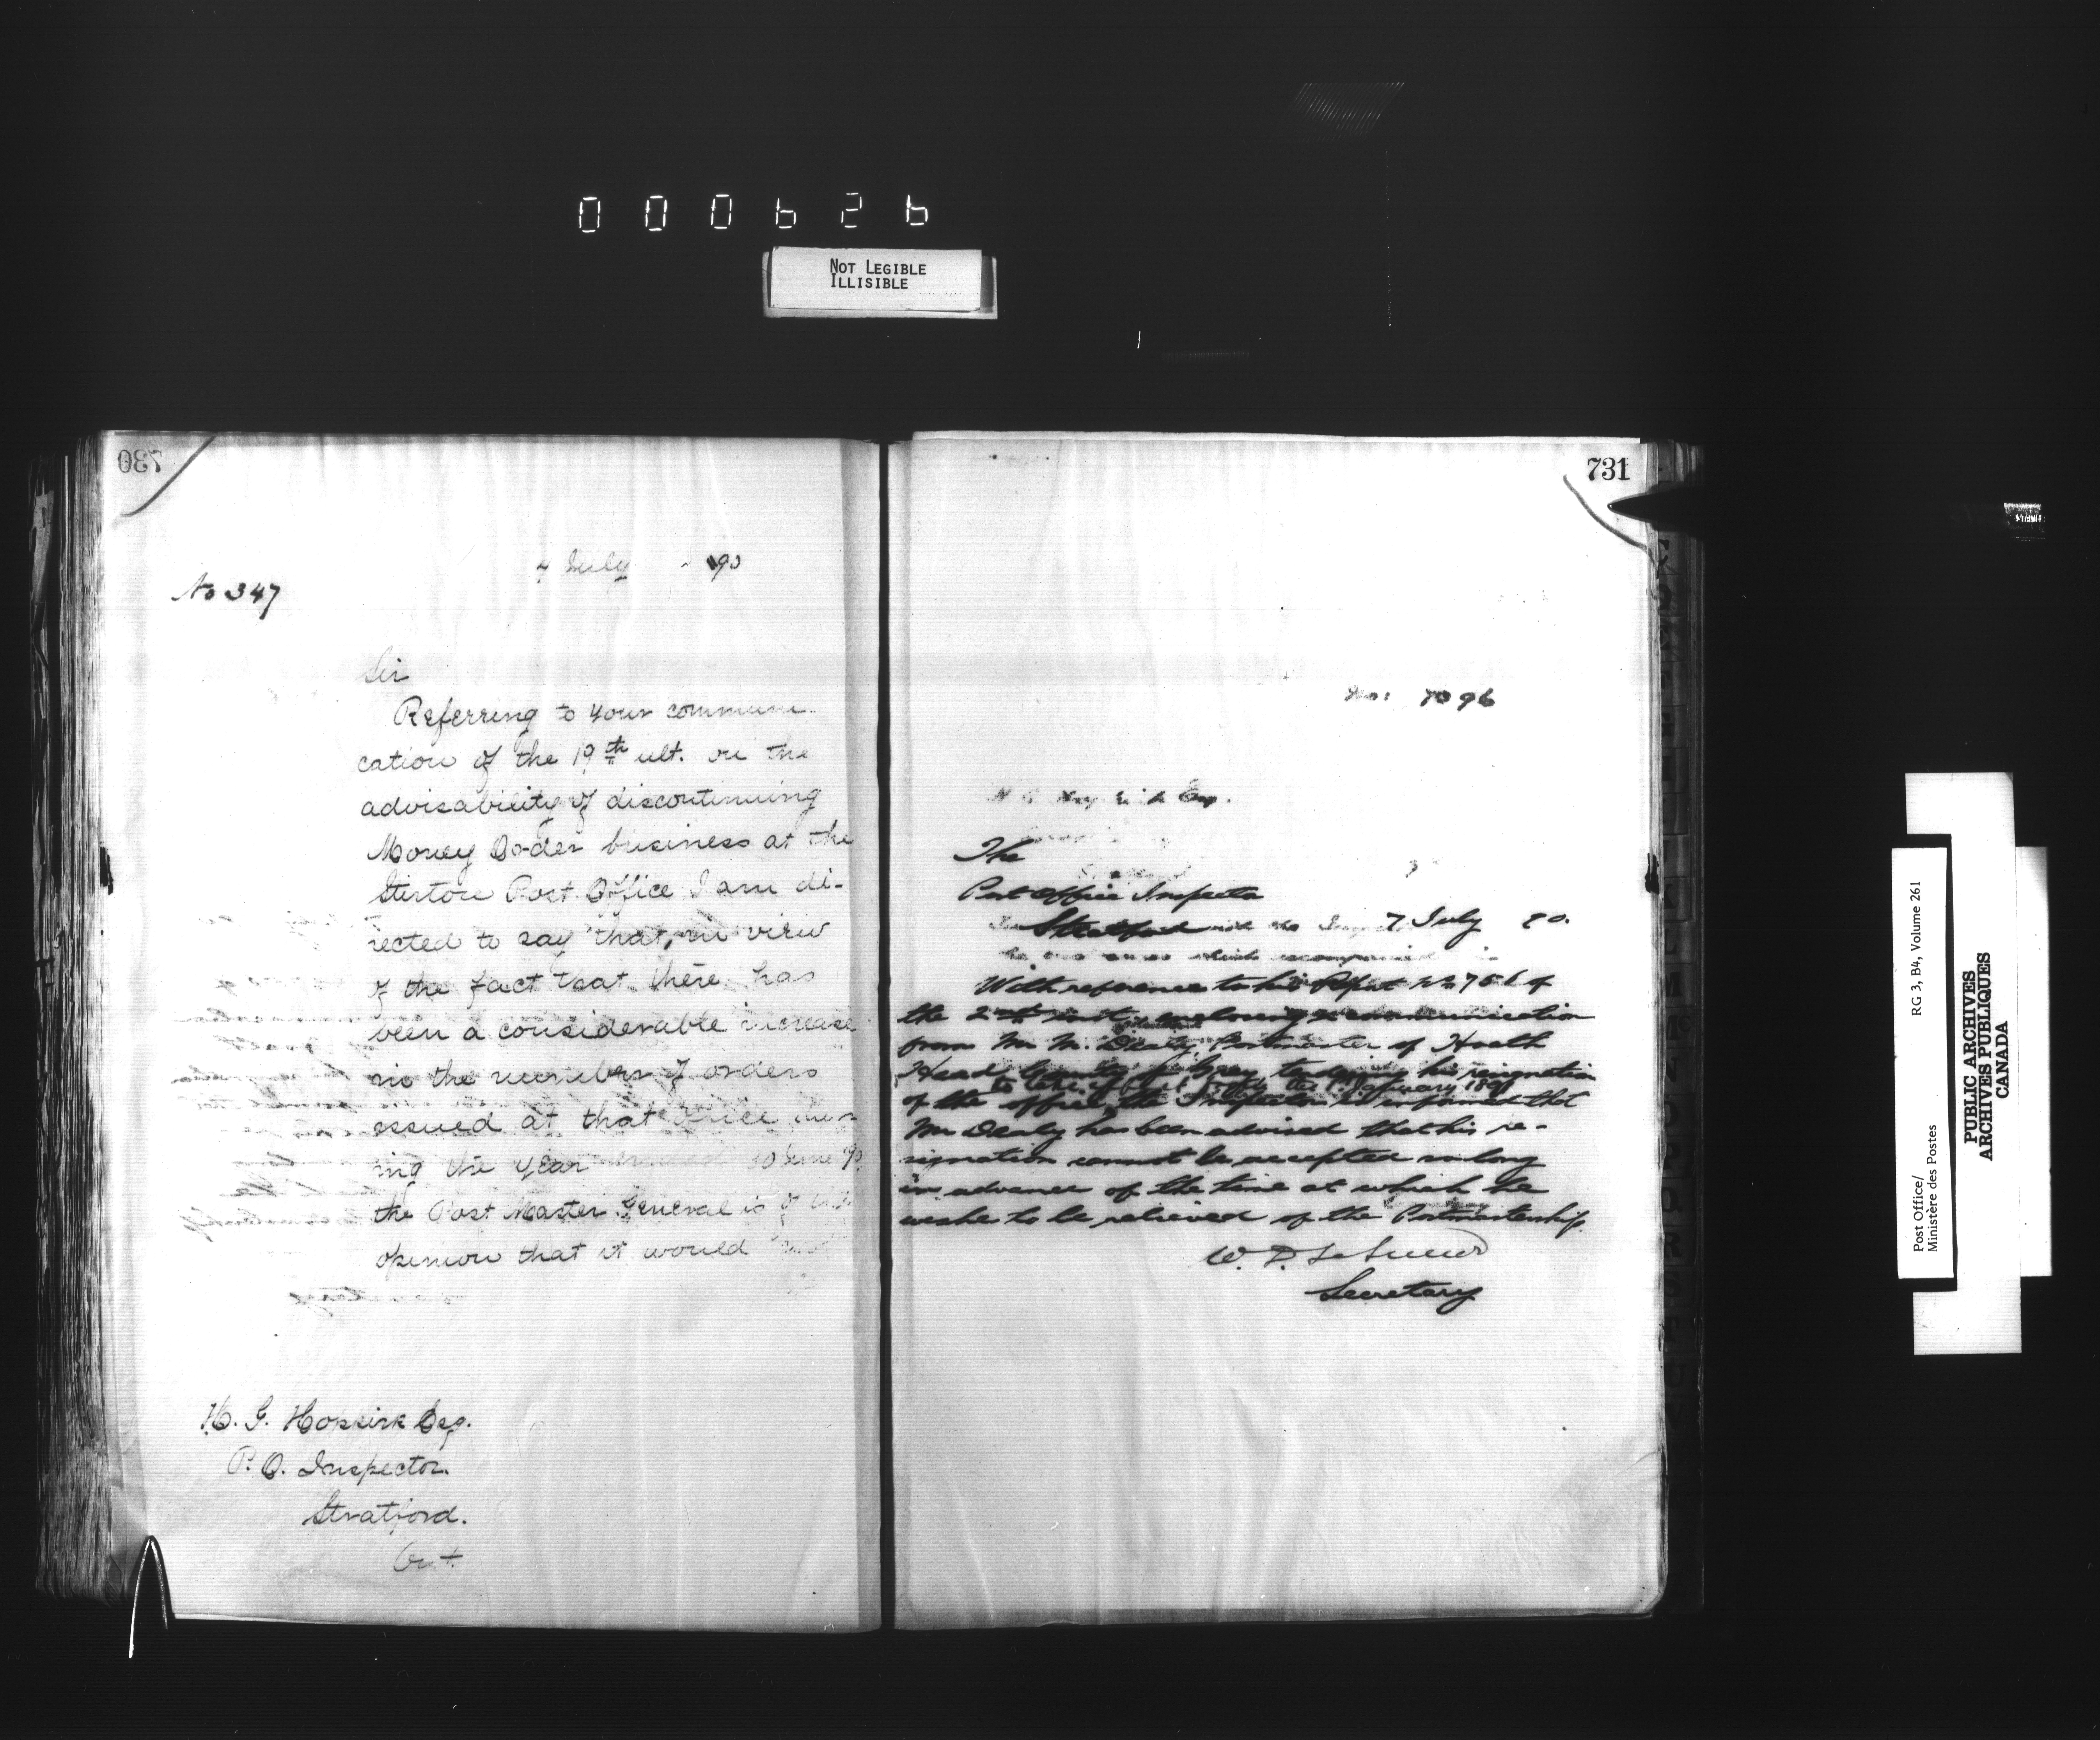 000626
NOT LEGIBLE
ILLISIBLE
730
7 July 90
No 347
Sir
Referring to your communi-
cation of the 19th ult. on the
advisability of discontinuing
Money Order business at the
Post Office I am di-
rected to say that, in view
of the fact that there has
been a considerable increase
in the number of orders
issued at that office dur-
ing the year ended 30 June 90
the Post Master General is of
opinion that it would
H. G. Hopkirk Esq.
P. O. Inspector.
Stratford.
Ont
731
No: 7096
Esq.
The
Post Office Inspector
Stratford 7 July 90.
which accompanied
With reference to his Report No 756 of
the 2nd inst. enclosing a communication
from Mr M. Dealy, Postmaster of Heath
Head, County of Grey, tendering his resignation
to take effect the 1st January 1891
of the office, the Inspector is informed that
Mr Dealy has been advised that his re-
signation cannot be accepted so long
in advance of the time at which he
wishes to be relieved of the Postmastership.
W. D. LeSueur
Secretary
Post Office/
Ministère des Postes
RG 3, B4, Volume 261
PUBLIC ARCHIVES
ARCHIVES PUBLIQUES
CANADA